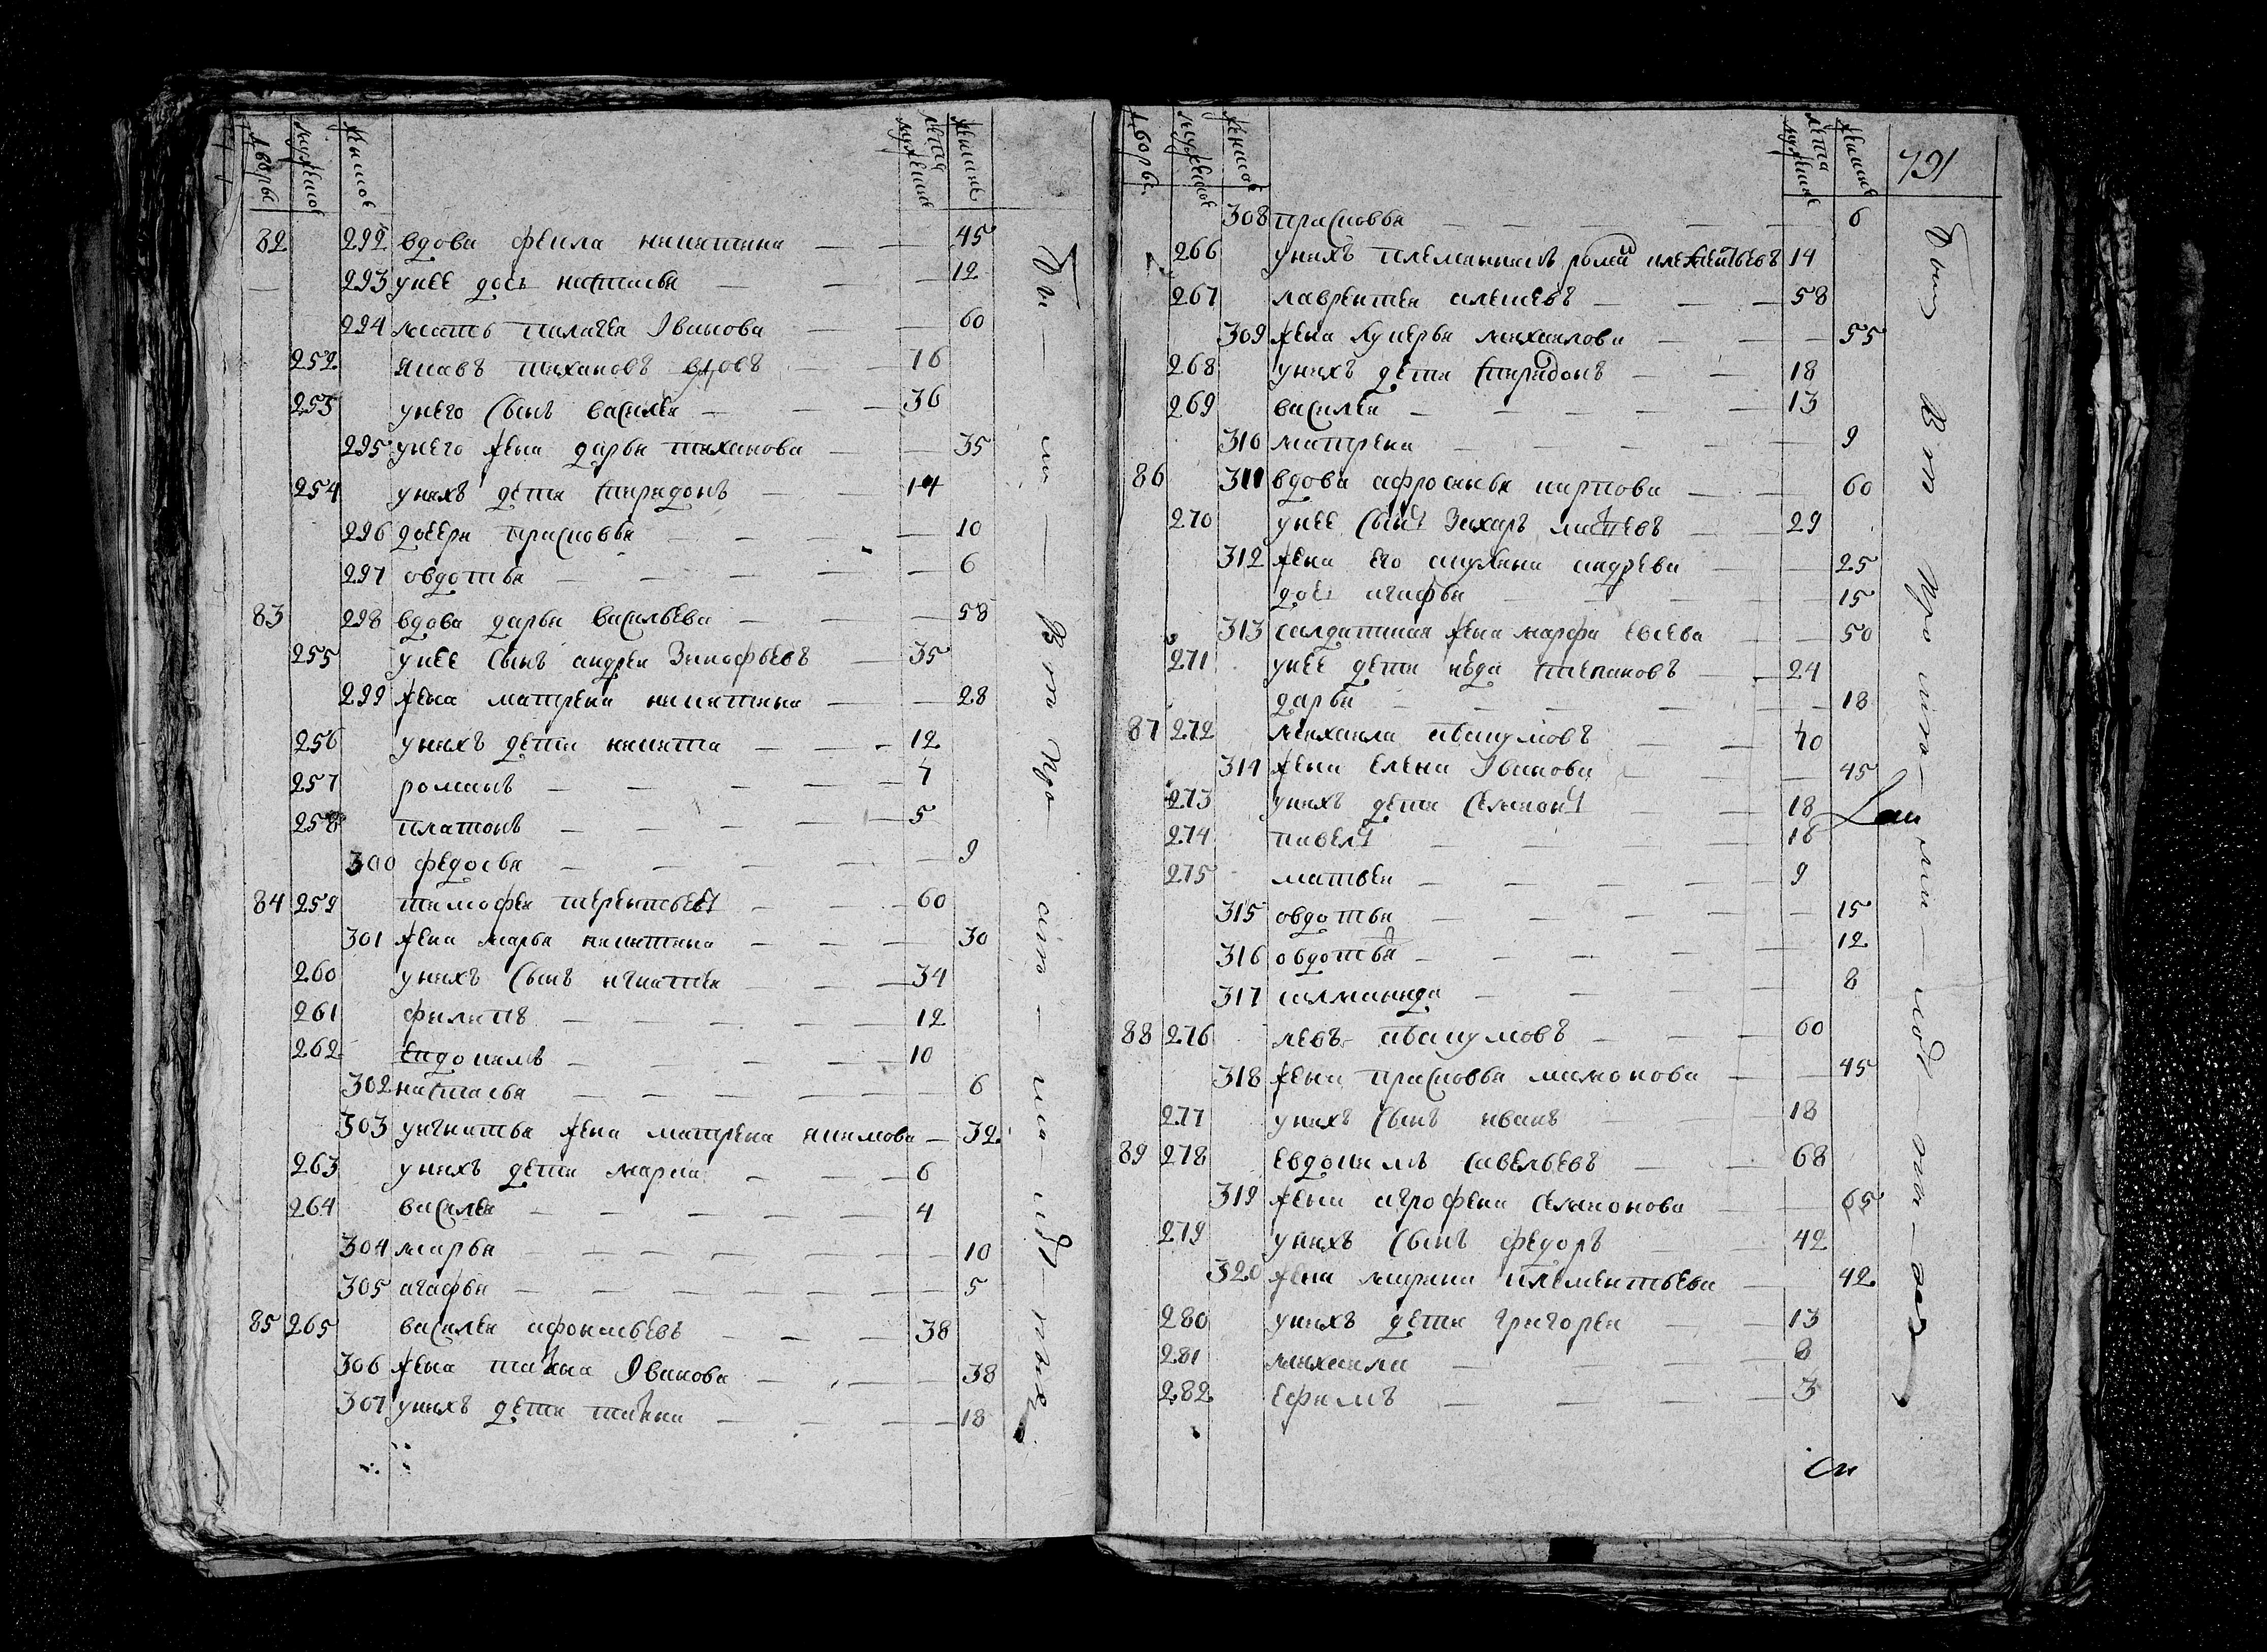 дворы мужескъ женскъ лета мужеские женские
82 292 вдова фекла никитина — — 45
293 унее дочь настасья — — — 12
294 мать палагея Iванова — — 60
252 яковъ тихановъ вдовъ — — 76
253 унего сынъ василеи — — — 36
295 унего жена дарья тиханова — — 35
254 унихъ дети спиридонъ — — 14
296 дочери прасковья — — — — 10
297 овдотья — — — — — 6
83 298 вдова дарья васильева — — — 58
255 унее сынъ андреи Зинофьевъ — 35
299 жена матрена никитина — — 28
256 унихъ дети никита — — — 12
257 романъ — — — — 7
258 платонъ — — — — — 5
300 федосья — — — — — 9
84 259 тимофеи терентьевъ — — 60
301 жена марья никитина — — — 30
260 унихъ сынъ игнатеи — — — 34
261 филипъ — — — — — 12
262 евдокимъ — — — — 10
302 настасья — — — — — — 6
303 уигнатья жена матрена якимова — 32
263 унихъ дети марки — — — 6
264 василеи — — — — — 4
304 марья — — — — — — 10
305 агафья — — — — — — — 5
85 265 василеи афонасьевъ — — — 38
306 жена татьяна Iванова — — — 38
307 унихъ дети татьяна — — — — 18
дворы мужескъ женскъ лета мужеские женские 791
308 прасковья — — — — — 6
266 унихъ племянникъ 14
267 лаврентеи алексевъ — — — 58
309 жена лукерья михаилова — — — 55
268 унихъ дети спиридонъ — — 18
269 василеи — — — — — 13
310 матрена — — — — — 9
86 311 вдова афросинья карпова — — 60
270 унее сынъ Захаръ матвевъ — — 29
312 жена его акулина андреева — — 25
дочь агафья — — — — — 15
313 салдатская жена марфа евсева — — 50
271 унее дети степановъ — — 24
дарья — — — — — — 18
87 272 михаила абакумовъ — — 40
314 жена елена Iванова — — 45
273 унихъ дети семионъ — — 18
274 павелъ — — — — 16
275 матвеи — — — — — 9
315 овдотья — — — — — 15
316 овдотья — — — — — 12
317 саламанида — — — — — 8
88 276 левъ абакумовъ — — — 60
318 жена прасковья мамонова — — 45
277 унихъ сынъ иванъ — — 18
89 278 евдокимъ савельевъ — — 68
319 жена аграфена семионова — — 65
279 унихъ сынъ федоръ — — 42
320 жена марина клементьева — 42
280 унихъ дети григореи — — 13
281 михаила — — — — 8
282 ефимъ — — — — 3